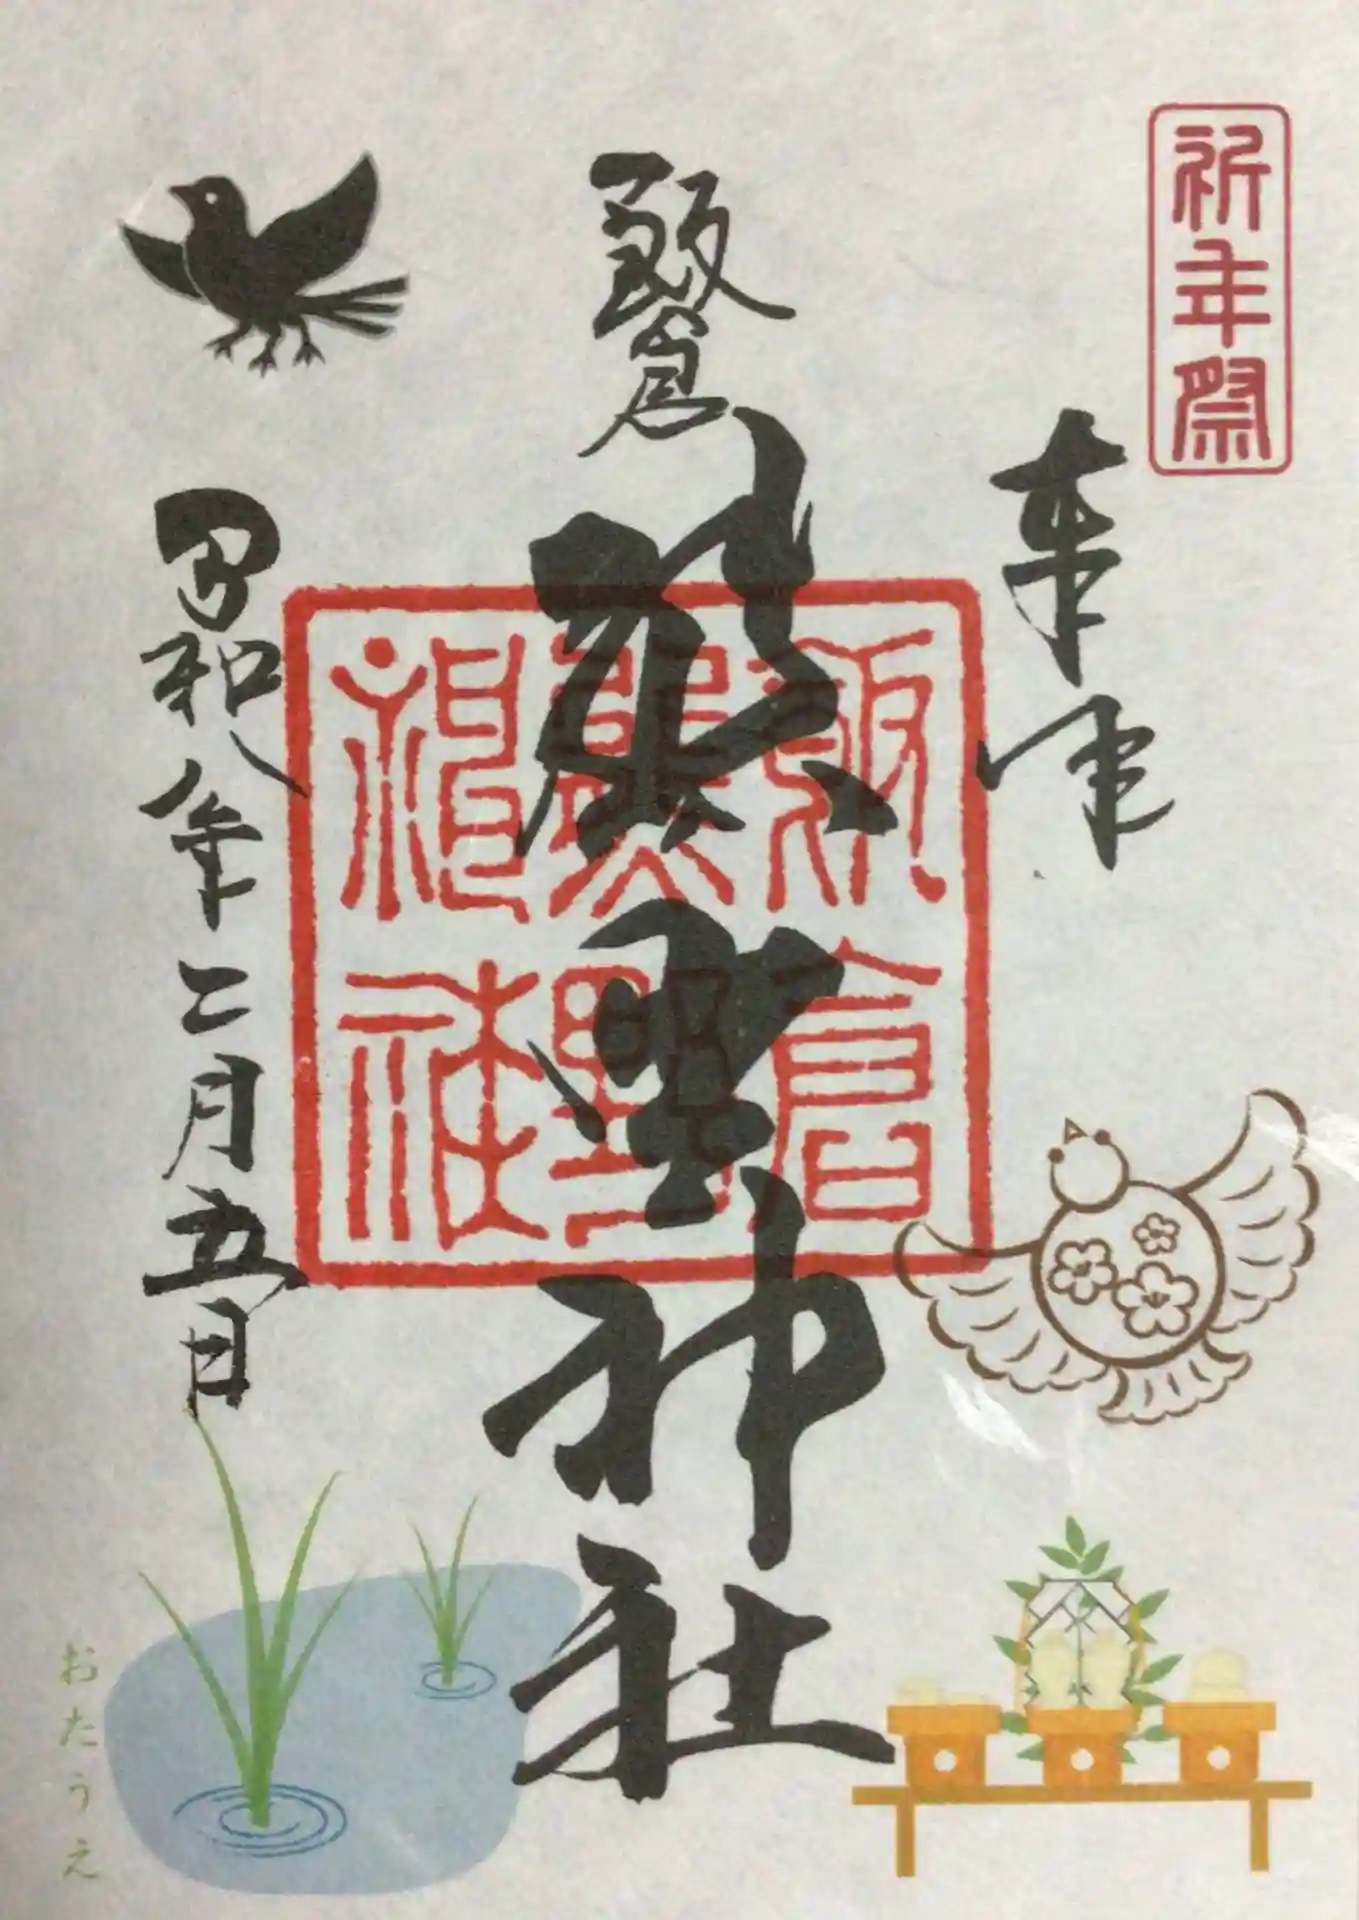 祈年祭
奉拝
飯倉
熊野神社
飯倉
熊野
神社
令和八年二月五日
おたうえ